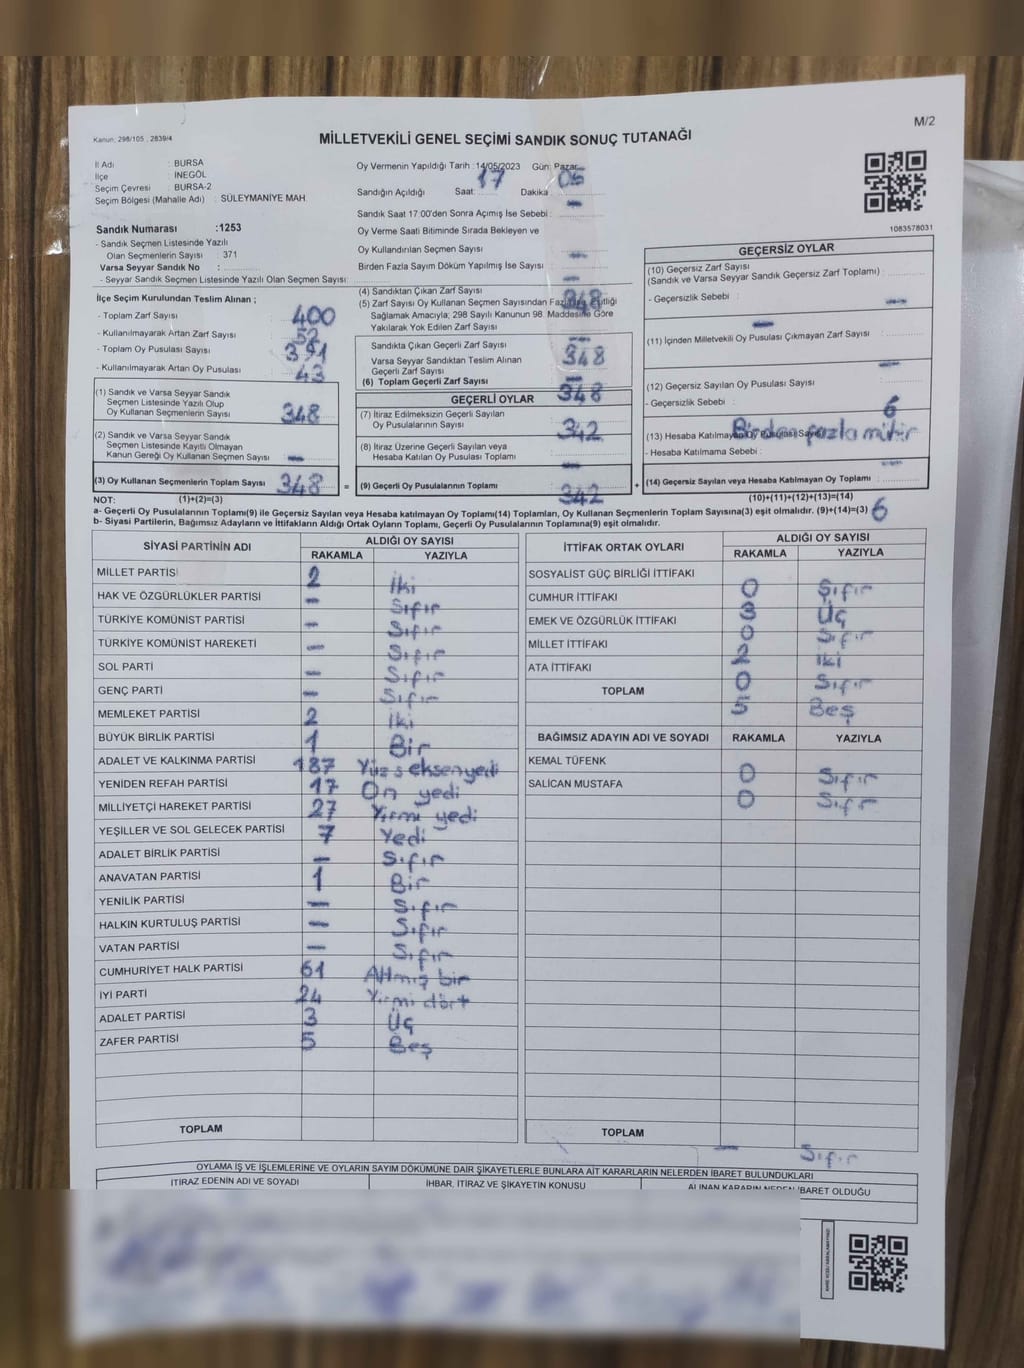 M/2
Kanun: 298/105 , 2839/4
MİLLETVEKİLİ GENEL SEÇİMİ SANDIK SONUÇ TUTANAĞI
İl Adı : BURSA
İlçe : İNEGÖL
Seçim Çevresi : BURSA-2
Seçim Bölgesi (Mahalle Adı) : SÜLEYMANİYE MAH.
Sandık Numarası :1253
- Sandık Seçmen Listesinde Yazılı
Olan Seçmenlerin Sayısı : 371
Varsa Seyyar Sandık No :
- Seyyar Sandık Seçmen Listesinde Yazılı Olan Seçmen Sayısı:
İlçe Seçim Kurulundan Teslim Alınan ;
- Toplam Zarf Sayısı 400
- Kullanılmayarak Artan Zarf Sayısı 52
- Toplam Oy Pusulası Sayısı 391
- Kullanılmayarak Artan Oy Pusulası 43
(1) Sandık ve Varsa Seyyar Sandık
Seçmen Listesinde Yazılı Olup
Oy Kullanan Seçmenlerin Sayısı 348
(2) Sandık ve Varsa Seyyar Sandık
Seçmen Listesinde Kayıtlı Olmayan
Kanun Gereği Oy Kullanan Seçmen Sayısı -
(3) Oy Kullanan Seçmenlerin Toplam Sayısı 348 =
Oy Vermenin Yapıldığı Tarih : 14/05/2023 Gün: Pazar
Sandığın Açıldığı Saat: 17 Dakika 05
Sandık Saat 17:00'den Sonra Açımış İse Sebebi : -
Oy Verme Saati Bitiminde Sırada Bekleyen ve
Oy Kullandırılan Seçmen Sayısı -
Birden Fazla Sayım Döküm Yapılmış İse Sayısı -
(4) Sandıktan Çıkan Zarf Sayısı 348
(5) Zarf Sayısı Oy Kullanan Seçmen Sayısından Fazla İse Eşitliği
Sağlamak Amacıyla; 298 Sayılı Kanunun 98. Maddesine Göre
Yakılarak Yok Edilen Zarf Sayısı -
Sandıkta Çıkan Geçerli Zarf Sayısı 348
Varsa Seyyar Sandıktan Teslim Alınan
Geçerli Zarf Sayısı -
(6) Toplam Geçerli Zarf Sayısı 348
GEÇERLİ OYLAR
(7) İtiraz Edilmeksizin Geçerli Sayılan
Oy Pusulalarının Sayısı 342
(8) İtiraz Üzerine Geçerli Sayılan veya
Hesaba Katılan Oy Pusulası Toplamı -
(9) Geçerli Oy Pusulalarının Toplamı 342 +
1083578031
GEÇERSİZ OYLAR
(10) Geçersiz Zarf Sayısı
(Sandık ve Varsa Seyyar Sandık Geçersiz Zarf Toplamı) : -
- Geçersizlik Sebebi : -
(11) İçinden Milletvekili Oy Pusulası Çıkmayan Zarf Sayısı -
(12) Geçersiz Sayılan Oy Pusulası Sayısı 6
- Geçersizlik Sebebi : Birden fazla mühür
(13) Hesaba Katılmayan Oy Pusulası Sayısı -
- Hesaba Katılmama Sebebi :
(14) Geçersiz Sayılan veya Hesaba Katılmayan Oy Toplamı : 6
NOT: (1)+(2)=(3) (10)+(11)+(12)+(13)=(14)
a- Geçerli Oy Pusulalarının Toplamı(9) ile Geçersiz Sayılan veya Hesaba katılmayan Oy Toplamı(14) Toplamları, Oy Kullanan Seçmenlerin Toplam Sayısına(3) eşit olmalıdır. (9)+(14)=(3)
b- Siyasi Partilerin, Bağımsız Adayların ve İttifakların Aldığı Ortak Oyların Toplamı, Geçerli Oy Pusulalarının Toplamına(9) eşit olmalıdır.
SİYASİ PARTİNİN ADI ALDIĞI OY SAYISI
RAKAMLA YAZIYLA
MİLLET PARTİSİ 2 İki
HAK VE ÖZGÜRLÜKLER PARTİSİ - Sıfır
TÜRKİYE KOMÜNİST PARTİSİ - Sıfır
TÜRKİYE KOMÜNİST HAREKETİ - Sıfır
SOL PARTİ - Sıfır
GENÇ PARTİ - Sıfır
MEMLEKET PARTİSİ 2 İki
BÜYÜK BİRLİK PARTİSİ 1 Bir
ADALET VE KALKINMA PARTİSİ 187 Yüz seksen yedi
YENİDEN REFAH PARTİSİ 17 On yedi
MİLLİYETÇİ HAREKET PARTİSİ 27 Yirmi yedi
YEŞİLLER VE SOL GELECEK PARTİSİ 7 Yedi
ADALET BİRLİK PARTİSİ - Sıfır
ANAVATAN PARTİSİ 1 Bir
YENİLİK PARTİSİ - Sıfır
HALKIN KURTULUŞ PARTİSİ - Sıfır
VATAN PARTİSİ - Sıfır
CUMHURİYET HALK PARTİSİ 61 Altmış bir
İYİ PARTİ 24 Yirmi dört
ADALET PARTİSİ 3 Üç
ZAFER PARTİSİ 5 Beş
TOPLAM
İTTİFAK ORTAK OYLARI ALDIĞI OY SAYISI
RAKAMLA YAZIYLA
SOSYALİST GÜÇ BİRLİĞİ İTTİFAKI 0 Sıfır
CUMHUR İTTİFAKI 3 Üç
EMEK VE ÖZGÜRLÜK İTTİFAKI 0 Sıfır
MİLLET İTTİFAKI 2 İki
ATA İTTİFAKI 0 Sıfır
TOPLAM 5 Beş
BAĞIMSIZ ADAYIN ADI VE SOYADI RAKAMLA YAZIYLA
KEMAL TÜFENK 0 Sıfır
SALİCAN MUSTAFA 0 Sıfr
TOPLAM - Sıfır
OYLAMA İŞ VE İŞLEMLERİNE VE OYLARIN SAYIM DÖKÜMÜNE DAİR ŞİKAYETLERLE BUNLARA AİT KARARLARIN NELERDEN İBARET BULUNDUKLARI
İTİRAZ EDENİN ADI VE SOYADI İHBAR, İTİRAZ VE ŞİKAYETİN KONUSU ALINAN KARARIN NEDEN İBARET OLDUĞU